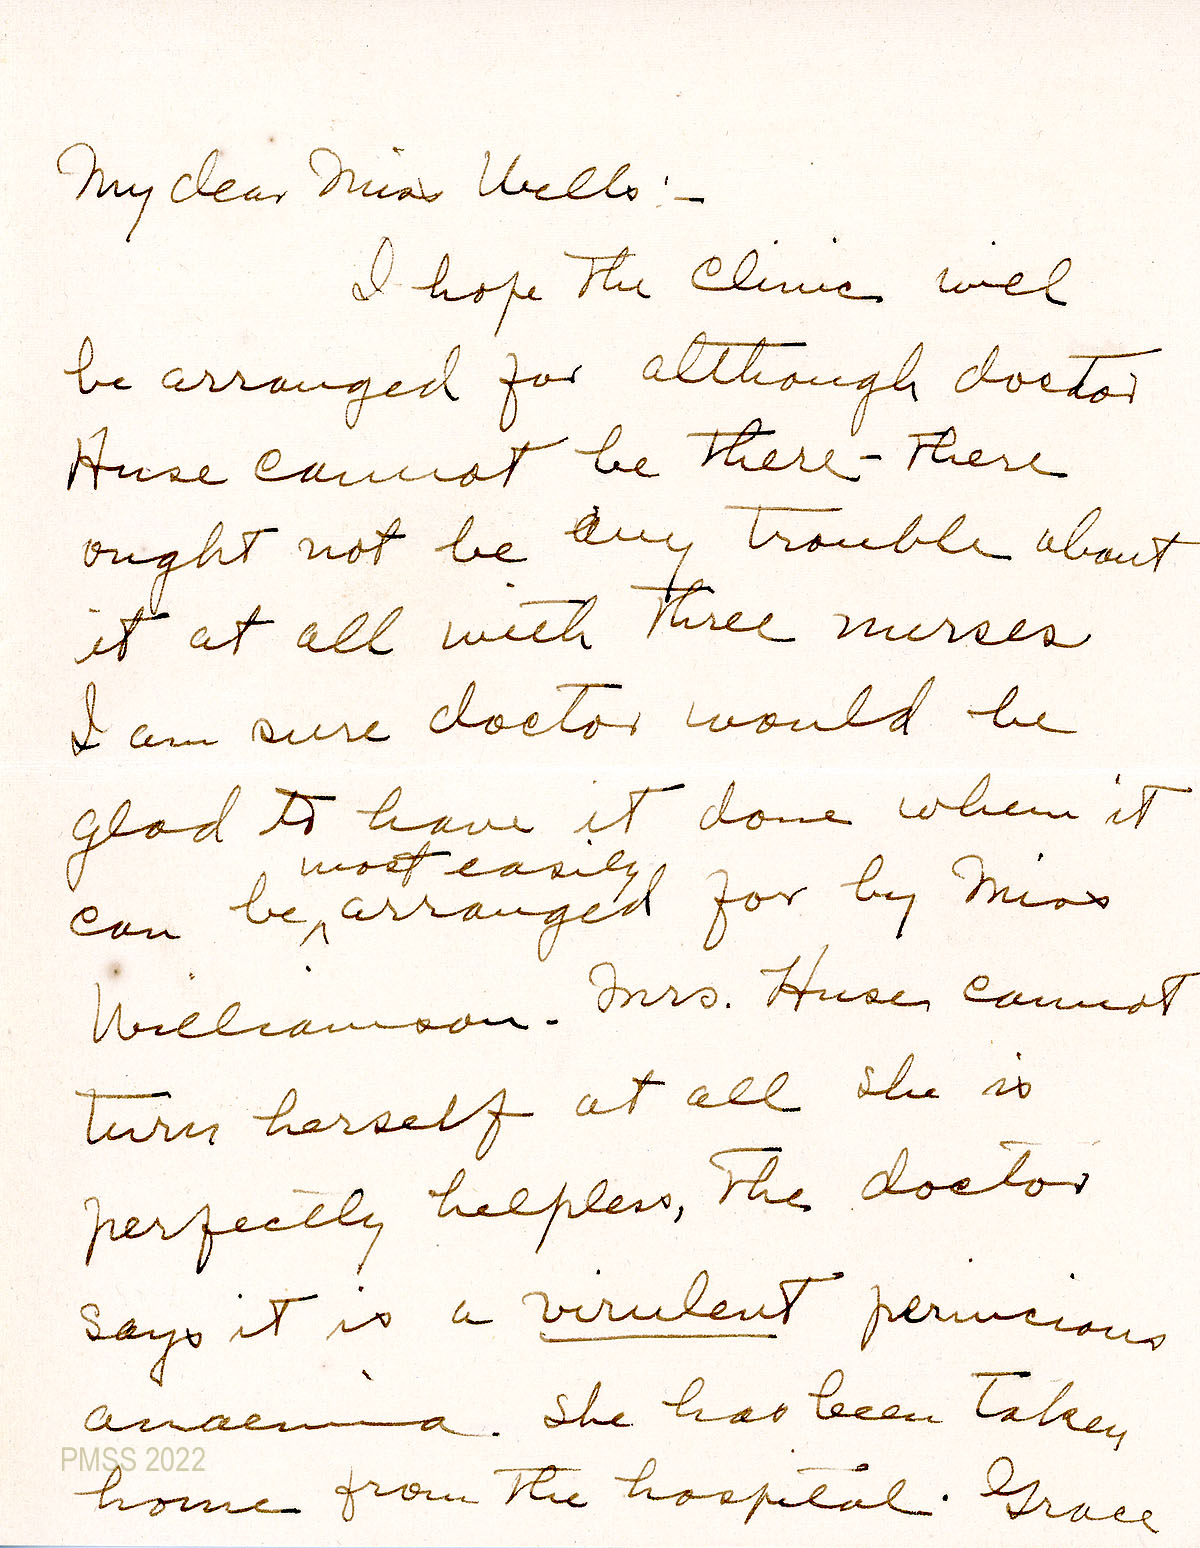 My dear Miss Wells:-
I hope the clinic will
be arranged for although doctor
Huse cannot be there - there
ought not be any trouble about
it at all with three nurses
I am sure doctor would be
glad to have it done when it
most easily
can be ^ arranged for by Miss
Williamson. Mrs. Huse cannot
turn herself at all she is
perfectly helpless, The doctor
says it is a virulent pernicious
anaemia. She has been taken
PMSS 2022
home from the hospital. Grace